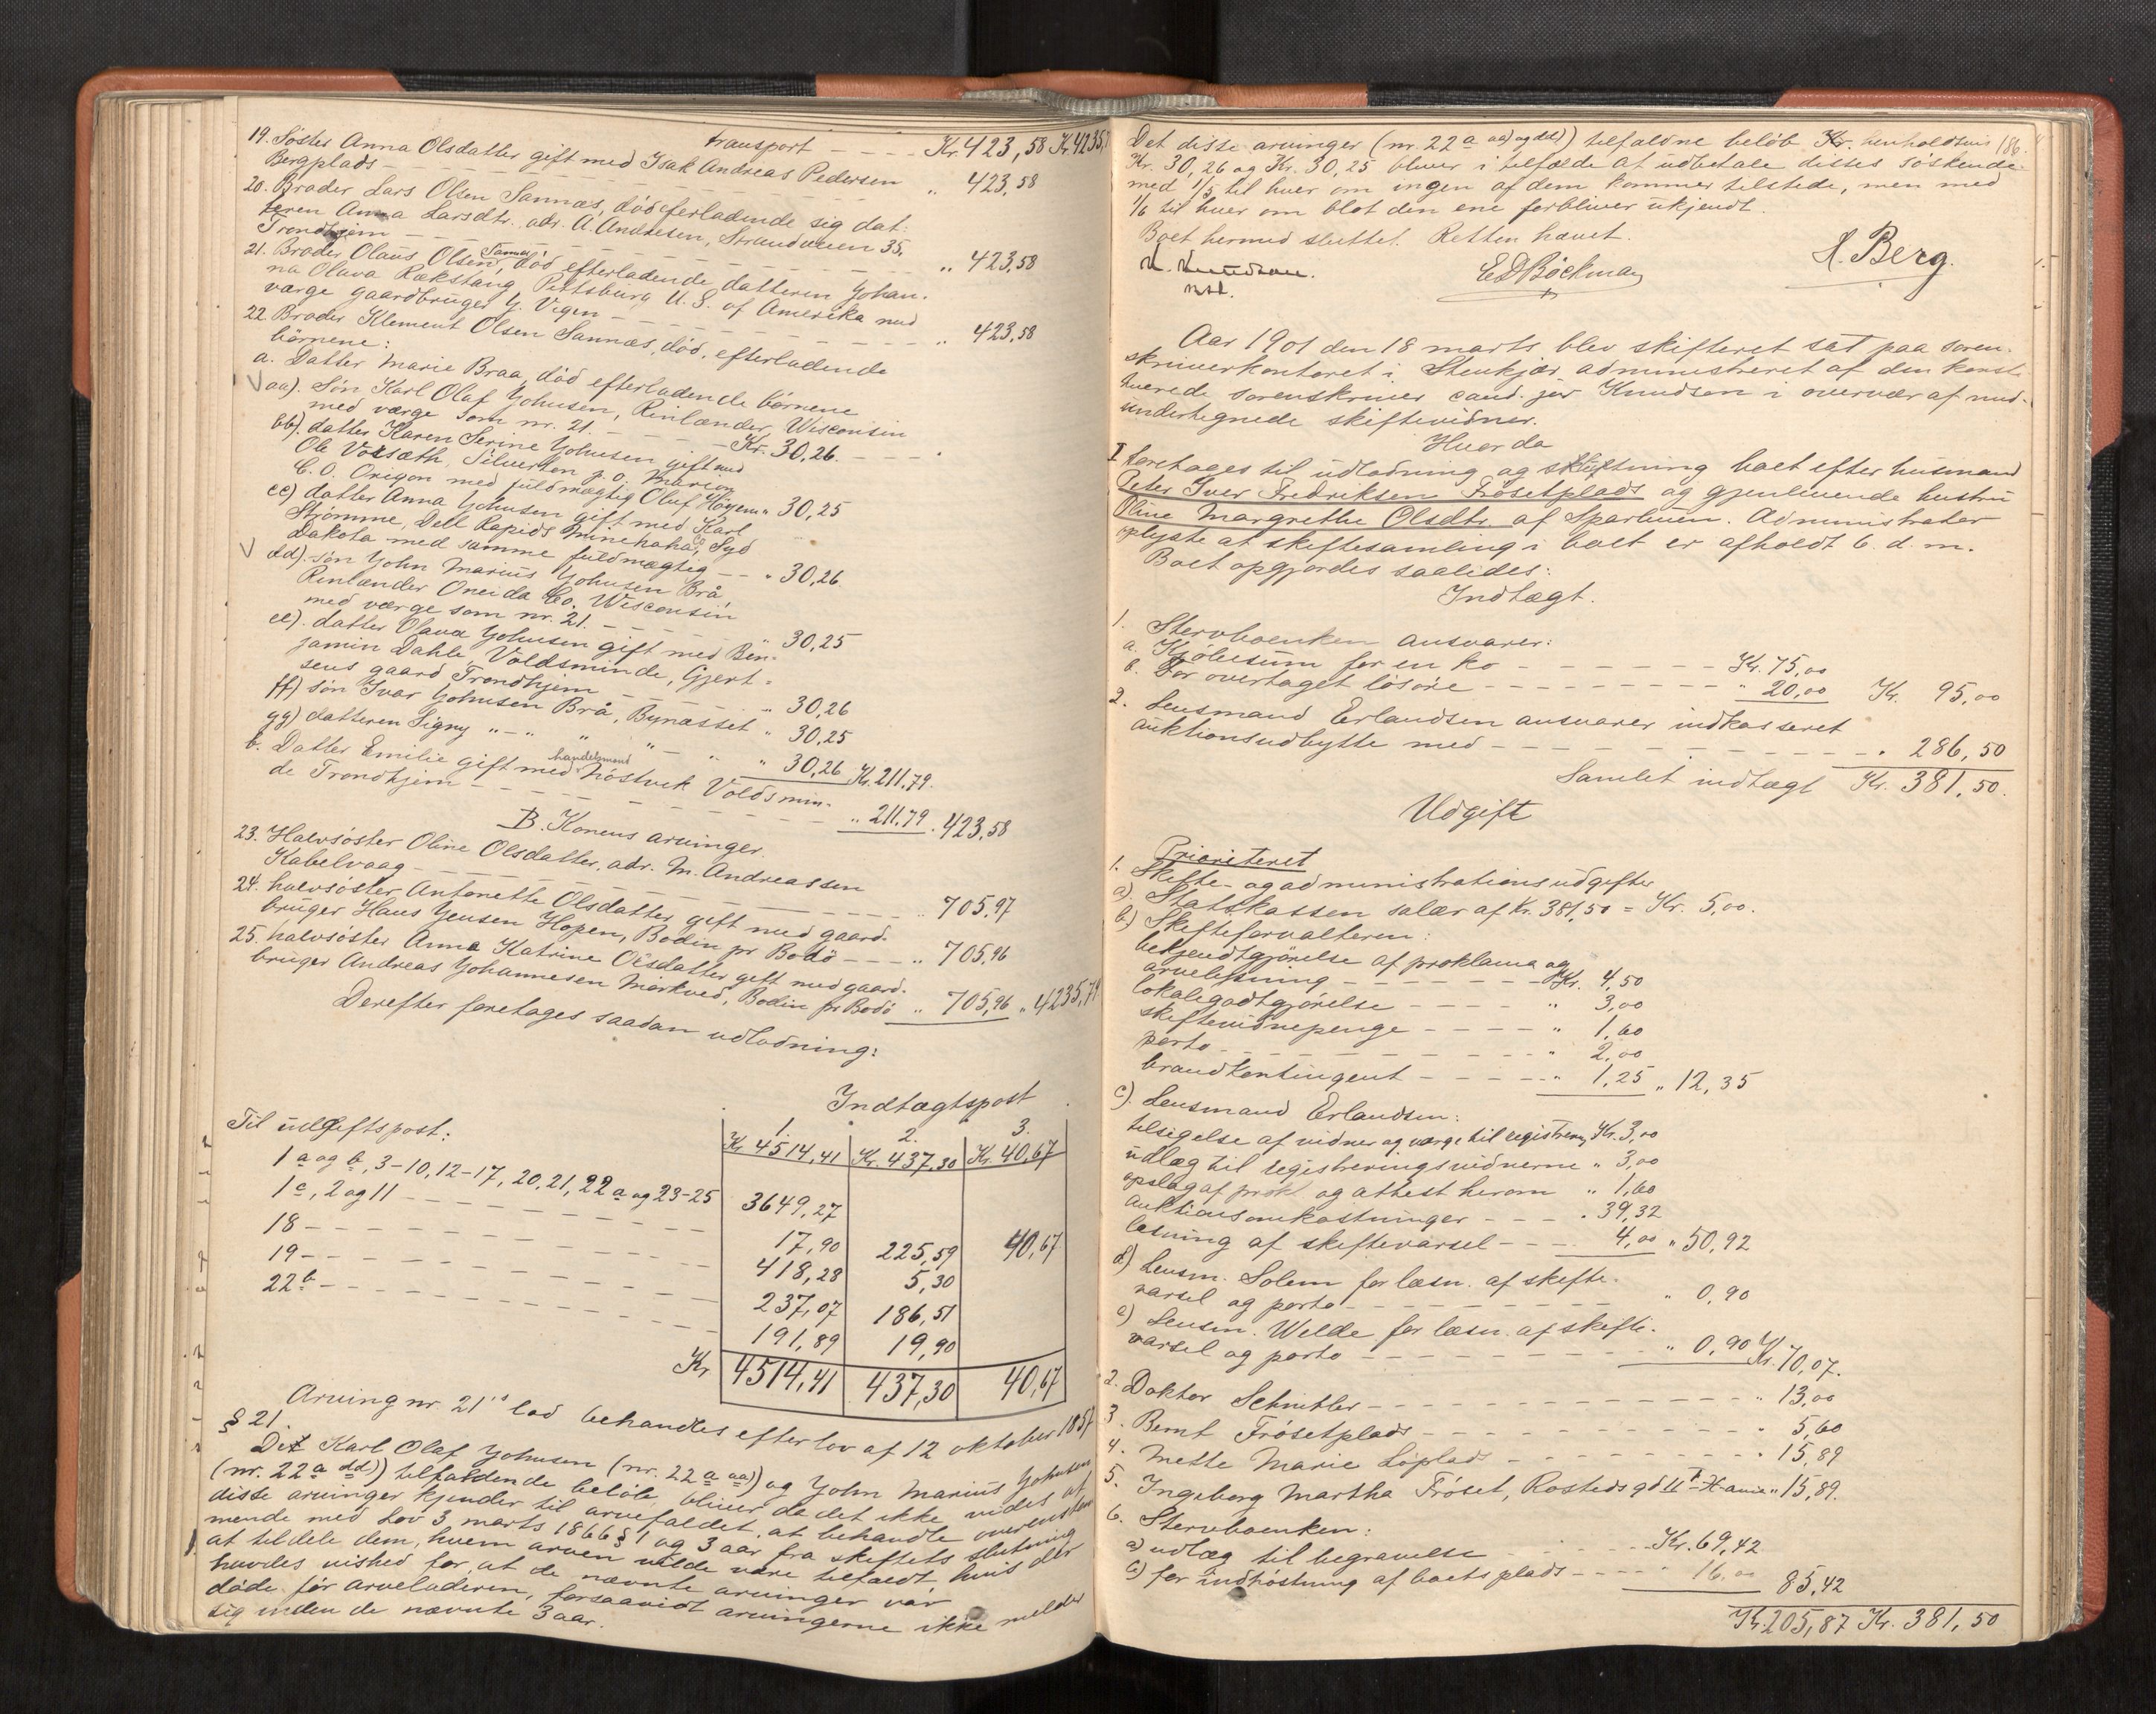 transport — — — Kr. 423,58 Kr. 4235,7
19. Søster Anna Olsdatter gift med Isak Andreas Pedersen
Bergplads — — — — — — " 423,58
20. Broder Lars Olsen Sannæs, død efterladende sig dat-
teren Anna Larsdtr. adr. A. Andresen, Strandveien 35,
Trondhjem — — — — — " 423,58
21. Broder Olaus Olsen Sannæs, død efterladende datteren Johan-
na Olava Rækstang, Pittsburg U.S. of Amerika med
værge gaardbruger J. Vigen — — — — " 423,58
22 Broder Klement Olsen Sannæs, død, efterladende
børnene:
a. Datter Marie Braa, død efterladende børnene
V aa). Søn Karl Olaf Johnsen, Rinlænder, Wisconsin
med værge som nr. 21. — — — Kr. 30,26. — —
bb). datter Karen Serine Johnsen gift med
Ole Volsæth, Silverton p.o. Marion
C.O. Origon med fuldmægtig Oluf Høyem " 30,25
cc) datter Anna Johnsen gift med Karl
Strømme, Dell Rapids Minehaha Co, Syd
Dakota med samme fuldmægtig — — " 30,26
V dd). søn John Marius Johnsen Brå,
Rinlænder Oneida Co, Wisconsin
med værge som nr. 21. — — — " 30,25
ee). datter Olava Johnsen gift med Ben-
jamin Dahle, Voldsminde, Gjert-
sens gaard Trondhjem — — — " 30,26
ff) søn Ivar Johnsen Brå, Bynæsset " 30,25
gg) datteren Signy " — " " — " " 30,26 Kr. 211,79.
b. Datter Emilie gift med handelsmand Høstvek Voldsmin-
de Trondhjem — — — — — — " 211,79 " 423,58
B. Konens arvinger.
23. Halvsøster Oline Olsdatter, adr. M. Andreassen
Kabelvaag — — — — — — " 705,97
24. halvsøster Antonette Olsdatter gift med gaard-
bruger Hans Jensen Hopen, Bodin pr Bodø — — " 705,96
25. halvsøster Anna Katrine Olsdatter gift med gaard-
bruger Andreas Johannesen Mørkved, Bodin pr Bodø " 705,96 " 4235,79
Derefter foretages saadan udlodning:
Indtægtspost
Til udgiftspost: 1. 2. 3.
Kr. 4514,41 Kr. 437,30 Kr. 40,67
1 a og b, 3-10, 12-17, 20, 21, 22 a og 23-25 3649,27
1 c, 2 og 11 — — — 17,90 225,59 40,67
18 — — — 418,28 5,30
19 — — — 237,07 186,51
22 b — — — 191,89 19,90
Kr 4514,41 437,30 40,67
Arving nr. 21's lod behandles efter lov af 12 oktober 1857
§ 21.
Det Karl Olaf Johnsen (nr. 22 a aa)) og John Marius Johnsen
(nr. 22 a dd)) tilfaldende beløb bliver da det ikke vides at
disse arvinger kjender til arvefaldet, at behandle overenstem-
mende med lov 3 marts 1866 § 1 og 3 aar fra skiftets slutning
at tildele dem, hvem arven vilde være tilfaldt hvis der
havdes vished for, at de nævnte arvinger var
døde før arveladeren, forsaavidt arvingerne ikke melder
sig inden de nævnte 3 aar.
Det disse arvinger (nr. 22 a aa) og dd)) tilfaldne beløb Kr. henholdsvis
186.
Kr. 30,26 og Kr. 30,25 bliver i tilfælde at udbetale disses søskende
med 1/5 til hver om ingen af dem kommer tilstede, men med
1/6 til hver om blot den ene forbliver ukjendt.
Boet hermed sluttet. Retten hævet.
K. Knudsen. E D Bøckman H. Berg.
Aar 1901 den 18 marts blev skifteret sat paa soren-
skriverkontoret i Stenkjær administreret af den konsti-
tuerede sorenskriver cand. jur Knudsen i overvær af med-
undertegnede skiftevidner.
Hvor da
I foretages til udlodning og slutning boet efter husmand
Peter Iver Fredriksen Frøsetplads og gjenlevende hustru
Oline Margrethe Olsdtr. af Sparbuen. Administrator
oplyste at skiftesamling i boet er afholdt 6. d. m.
Boet opgjordes saaledes:
Indtægt.
1. Stervboenken ansvarer:
a. Kjøbesum for en ko — — — Kr. 75,00
b. For overtaget løsøre — — — " 20,00 Kr. 95,00
2. Lensmand Erlandsen ansvarer indkasseret
auktionsudbytte med — — — — " 286,50
Samlet indtægt Kr. 381,50.
Udgift
Prioriteret
1. Skifte- og administrationsudgifter
a) Statskassen salær af Kr. 381,50 = Kr. 5,00.
b) Skifteforvalteren:
bekjendtgjørelse af proklama og
arvelysning — — — Kr. 4,50
lokalegodtgjørelse — — " 3,00
skiftevidnepenge — — " 1,60
porto — — — " 2,00
brandkontingent — — " 1,25 " 12,35
c). Lensmand Erlandsen:
tilsigelse af vidner og værge til registrering Kr. 3,00
udlæg til registreringsvidnerne " 3,00
opslag af prokl. og attest herom " 1,60
auktionsomkostninger — — " 39,32
læsning af skiftevarsel — — 4,00 " 50,92
d) Lensm. Solem for læsn. af skifte-
varsel og porto — — — " 0,90
e) Lensm. Welde for læsn. af skifte-
varsel og porto — — — " 0,90 Kr. 70,07.
2. Doktor Schnitler — — — " 13,00
3. Bernt Frøsetplads — — — " 5,60
4. Mette Marie Løplads — — — " 15,89
5. Ingeborg Martha Frøset, Rostads gd " 15,89.
6. Stervboenken:
a) udlæg til begravelse — — Kr. 69,42
b) for indhøstning af boets plads — — " 16,00 85,42
Kr. 205,87 Kr. 381,50